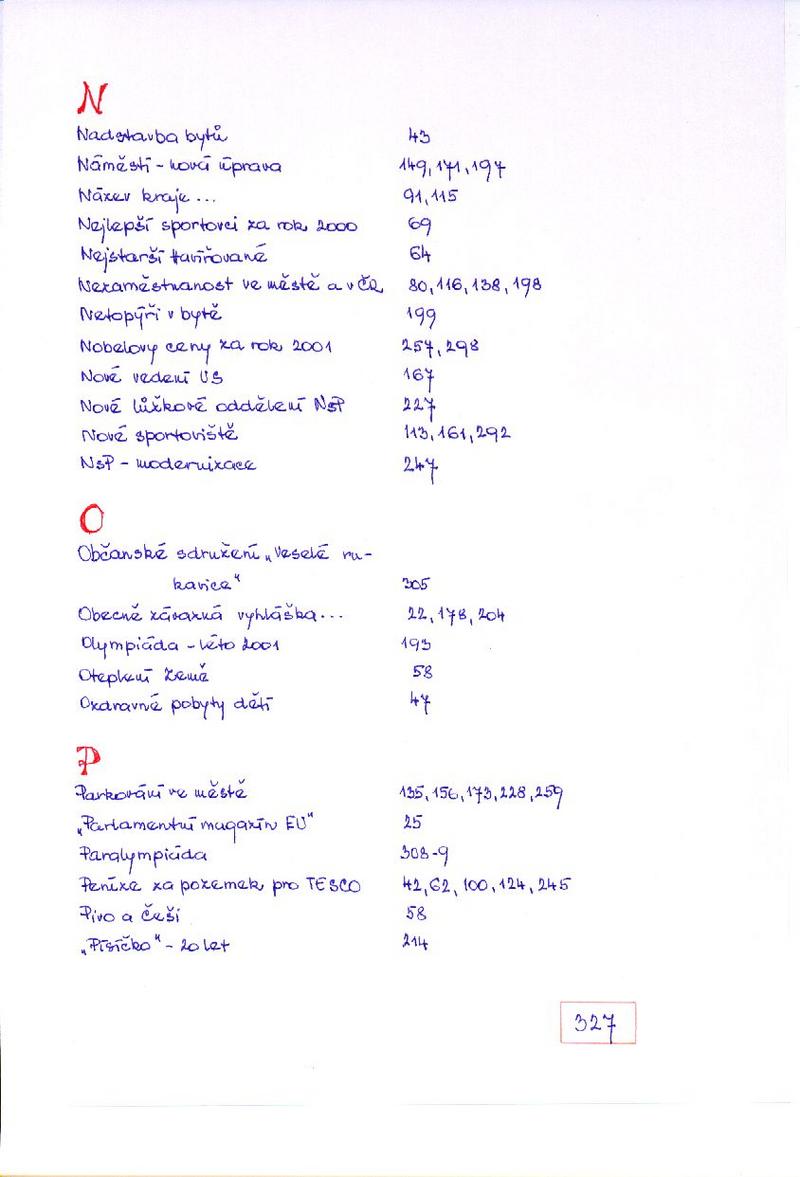 N
Nadstavba bytů 43
Náměstí - nová úprava 149, 171, 197
Název kraje... 91, 115
Nejlepší sportovci za rok 2000 69
Nejstarší Havířované 64
Nezaměstnanost ve městě a v ČR 80, 116, 138, 198
Netopýři v bytě 199
Nobelovy ceny za rok 2001 257, 298
Nové vedení US 167
Nové lůžkové oddělení NsP 227
Nové sportoviště 113, 161, 292
NsP - modernizace 247
O
Občanské sdružení „Veselé ru-
kavice" 305
Obecně závazná vyhláška... 22, 178, 204
Olympiáda - léto 2001 193
Oteplení Země 58
Ozdravné pobyty dětí 47
P
Parkování ve městě 135, 156, 173, 228, 259
„Parlamentní magazín EU" 25
Paralympiáda 308-9
Peníze za pozemek pro TESCO 42, 62, 100, 124, 245
Pivo a Češi 58
„Písíčko" - 20 let 214
327